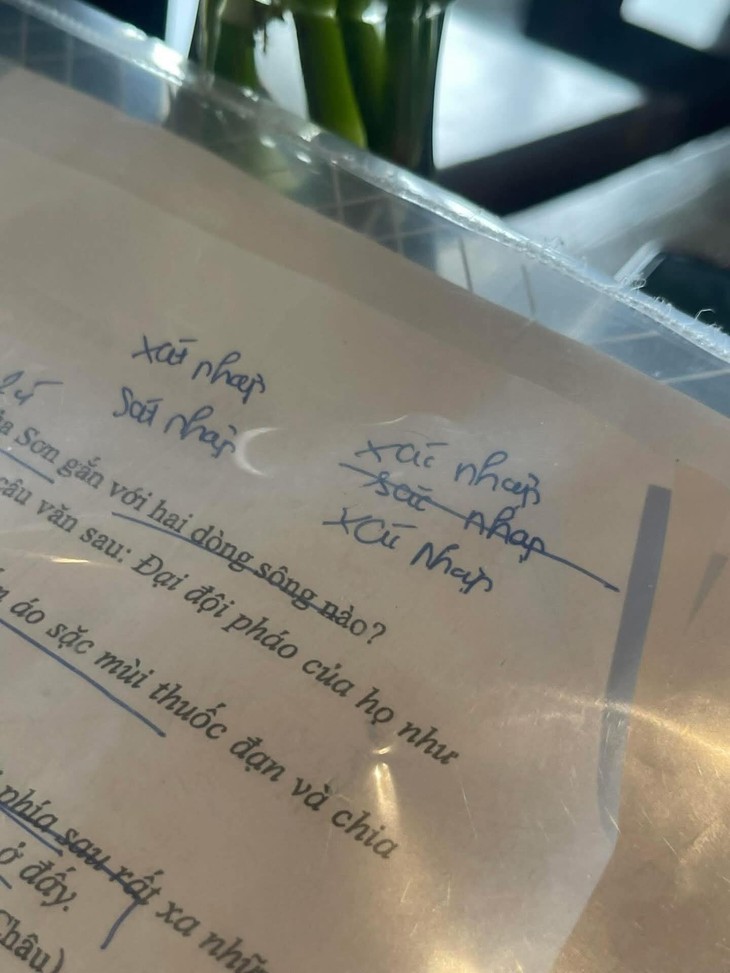 xát nhập
Sát nhập
xác nhập
sác nhập
xác Nhập
Sơn gắn với hai dòng sông nào?
câu văn sau: Đại đội pháo của họ như
áo sặc mùi thuốc đạn và chia
phía sau rất xa
ở đấy.
Châu)